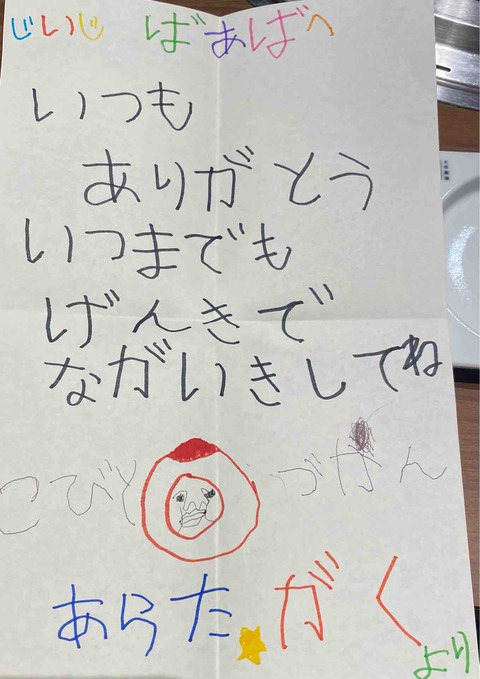 じいじ ばあばへ
いつも
ありがとう
いつまでも
げんきで
ながいきしてね
こびと づかん
あらた がく
より